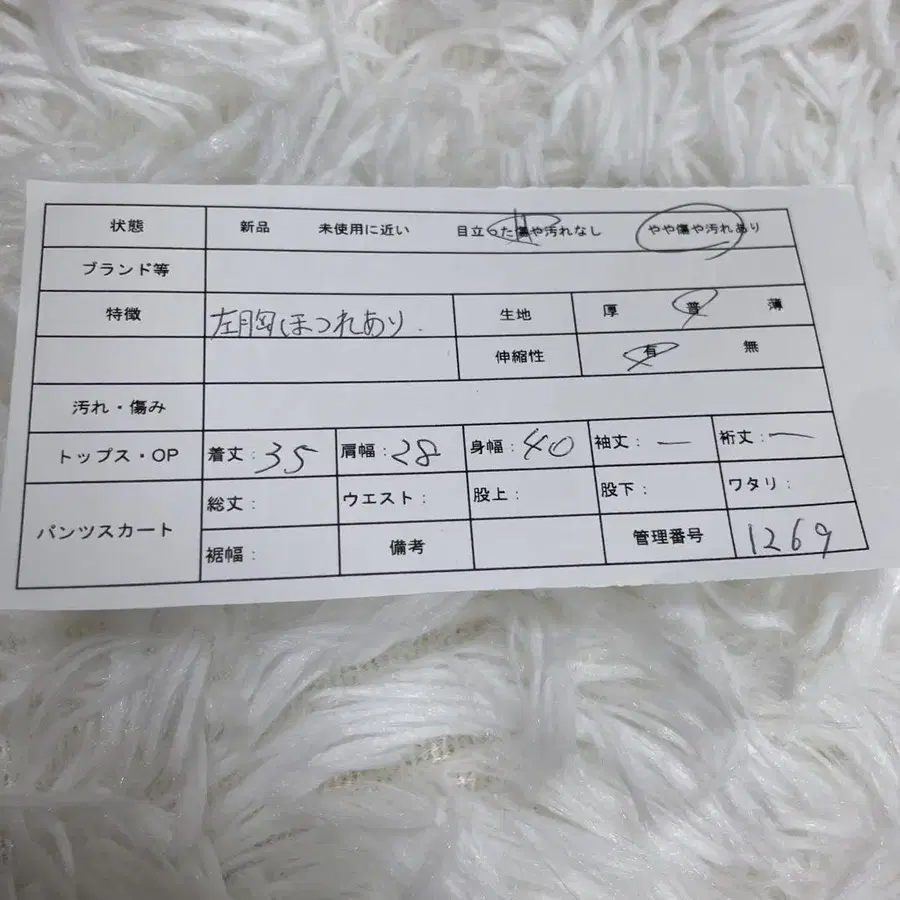 状態 新品 未使用に近い 目立った傷や汚れなし やや傷や汚れあり
ブランド等
特徴 左胸ほつれあり. 生地 厚 普 薄
伸縮性 有 無
汚れ・傷み
トップス・OP 着丈: 35 肩幅: 28 身幅: 40 袖丈: ー 裄丈: ー
パンツスカート 総丈: ウエスト: 股上: 股下: ワタリ:
裾幅: 備考 管理番号 1269